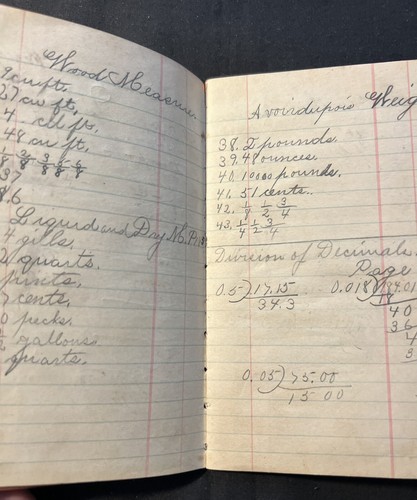 Wood Measure.
9 cu ft.
27 cu ft.
4 cu ft.
48 cu ft.
1/8 2/8 3/8 5/8 6/8
37
86
Liquid and Dry M.
4 gills.
quarts.
pints.
cents.
0 pecks.
1/2 gallons.
quarts.
Avoirdupois Weig
38. 2 pounds.
39. 48 ounces.
40. 10000 pounds.
41. 51 cents.
42. 1/8 1/2 3/4
43. 1/4 1/2 3/4
Division of Decimals.
Page
0.5)17.15 0.018)
34.3 18
40
36
4
3
0.05)75.00
15 00